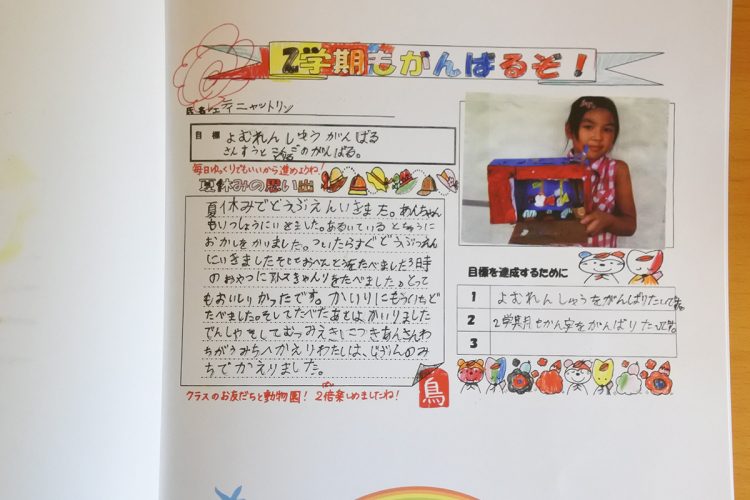 2学期もがんばるぞ！
氏名 エティニャットリン
目標 よむれんしゅうがんばる
さんすうと のがんばる。
毎日ゆっくりでもいいから進めようね！
夏休みの思い出
夏休みでどうぶえんいきました。あんちゃん
もいっしょうにいきました。あるいているとちゅうに
おかしをかいました。ついたらすぐどうぶつえん
にいきましたそしておべんとうをたべました3時
のおやつにアイスきゃんりをたべました。とって
もおいしいかったです。かいりにもういちど
たべました。そしてたべたあとよかいりました
でんしゃそしてむつみえきにつきあんさんわ
ちがうみちへかえりわたしは、じぶんのみ
ちでかえりました。
クラスのお友だちと動物園！2倍楽しめましたね！
ばい
鳥
目標を達成するために
1 よむれんしゅうをがんばりたいです。
2 2学期もかん字をがんばりたいです。
3